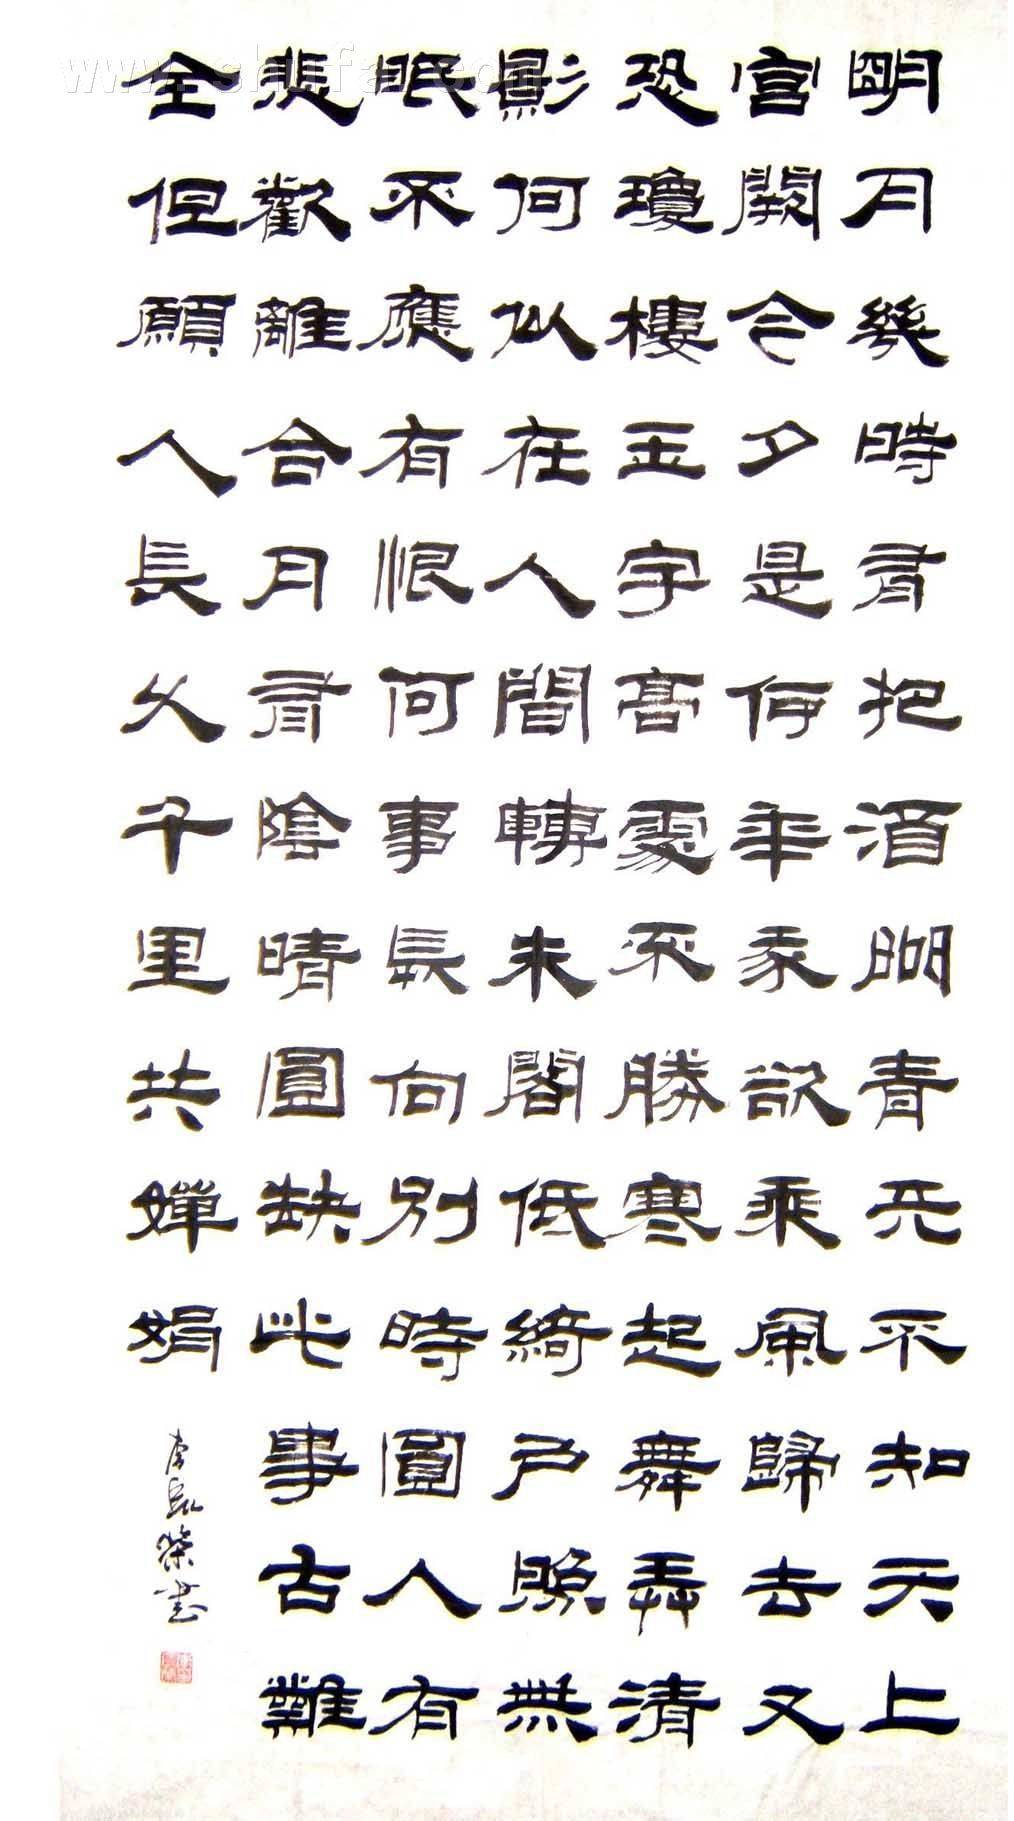 明月幾時有把酒問青天不知天上
宮闕今夕是何年我欲乘風歸去又
恐瓊樓玉宇高處不勝寒起舞弄清
影何似在人間轉朱閣低綺戶照無
眠不應有恨何事長向別時圓人有
悲歡離合月有陰晴圓缺此事古難
全但願人長久千里共嬋娟
李 榮書